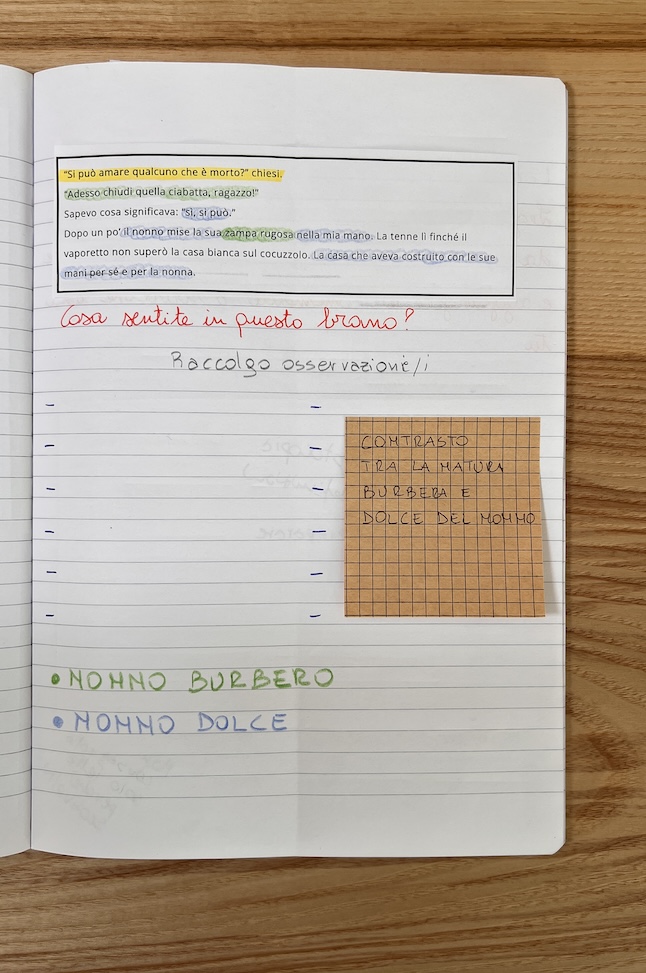 "Si può amare qualcuno che è morto?" chiesi.
"Adesso chiudi quella ciabatta, ragazzo!"
Sapevo cosa significava: "sì, si può."
Dopo un po' il nonno mise la sua zampa rugosa nella mia mano. La tenne lì finché il
vaporetto non superò la casa bianca sul cocuzzolo. La casa che aveva costruito con le sue
mani per sé e per la nonna.
Cosa sentite in questo brano?
Raccolgo osservazione/i
CONTRASTO
TRA LA NATURA
BURBERA E
DOLCE DEL NONNO
• NONNO BURBERO
• NONNO DOLCE